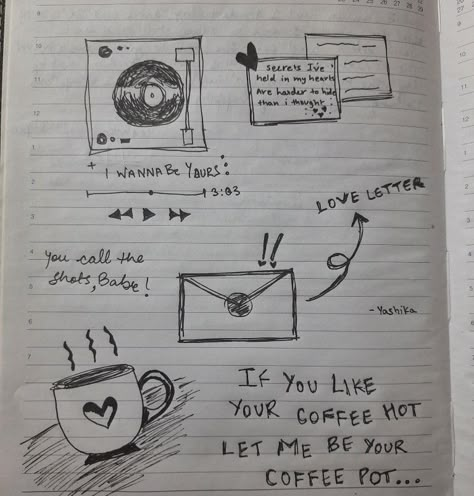 secrets I've
held in my hearts
Are harder to hide
than i thought
+ I WANNA BE YOURS
3:03
LOVE LETTER
You call the
shots, Babe!
!!
- Yashika
IF YOU LIKE
YOUR COFFEE HOT
LET ME BE YOUR
COFFEE POT...